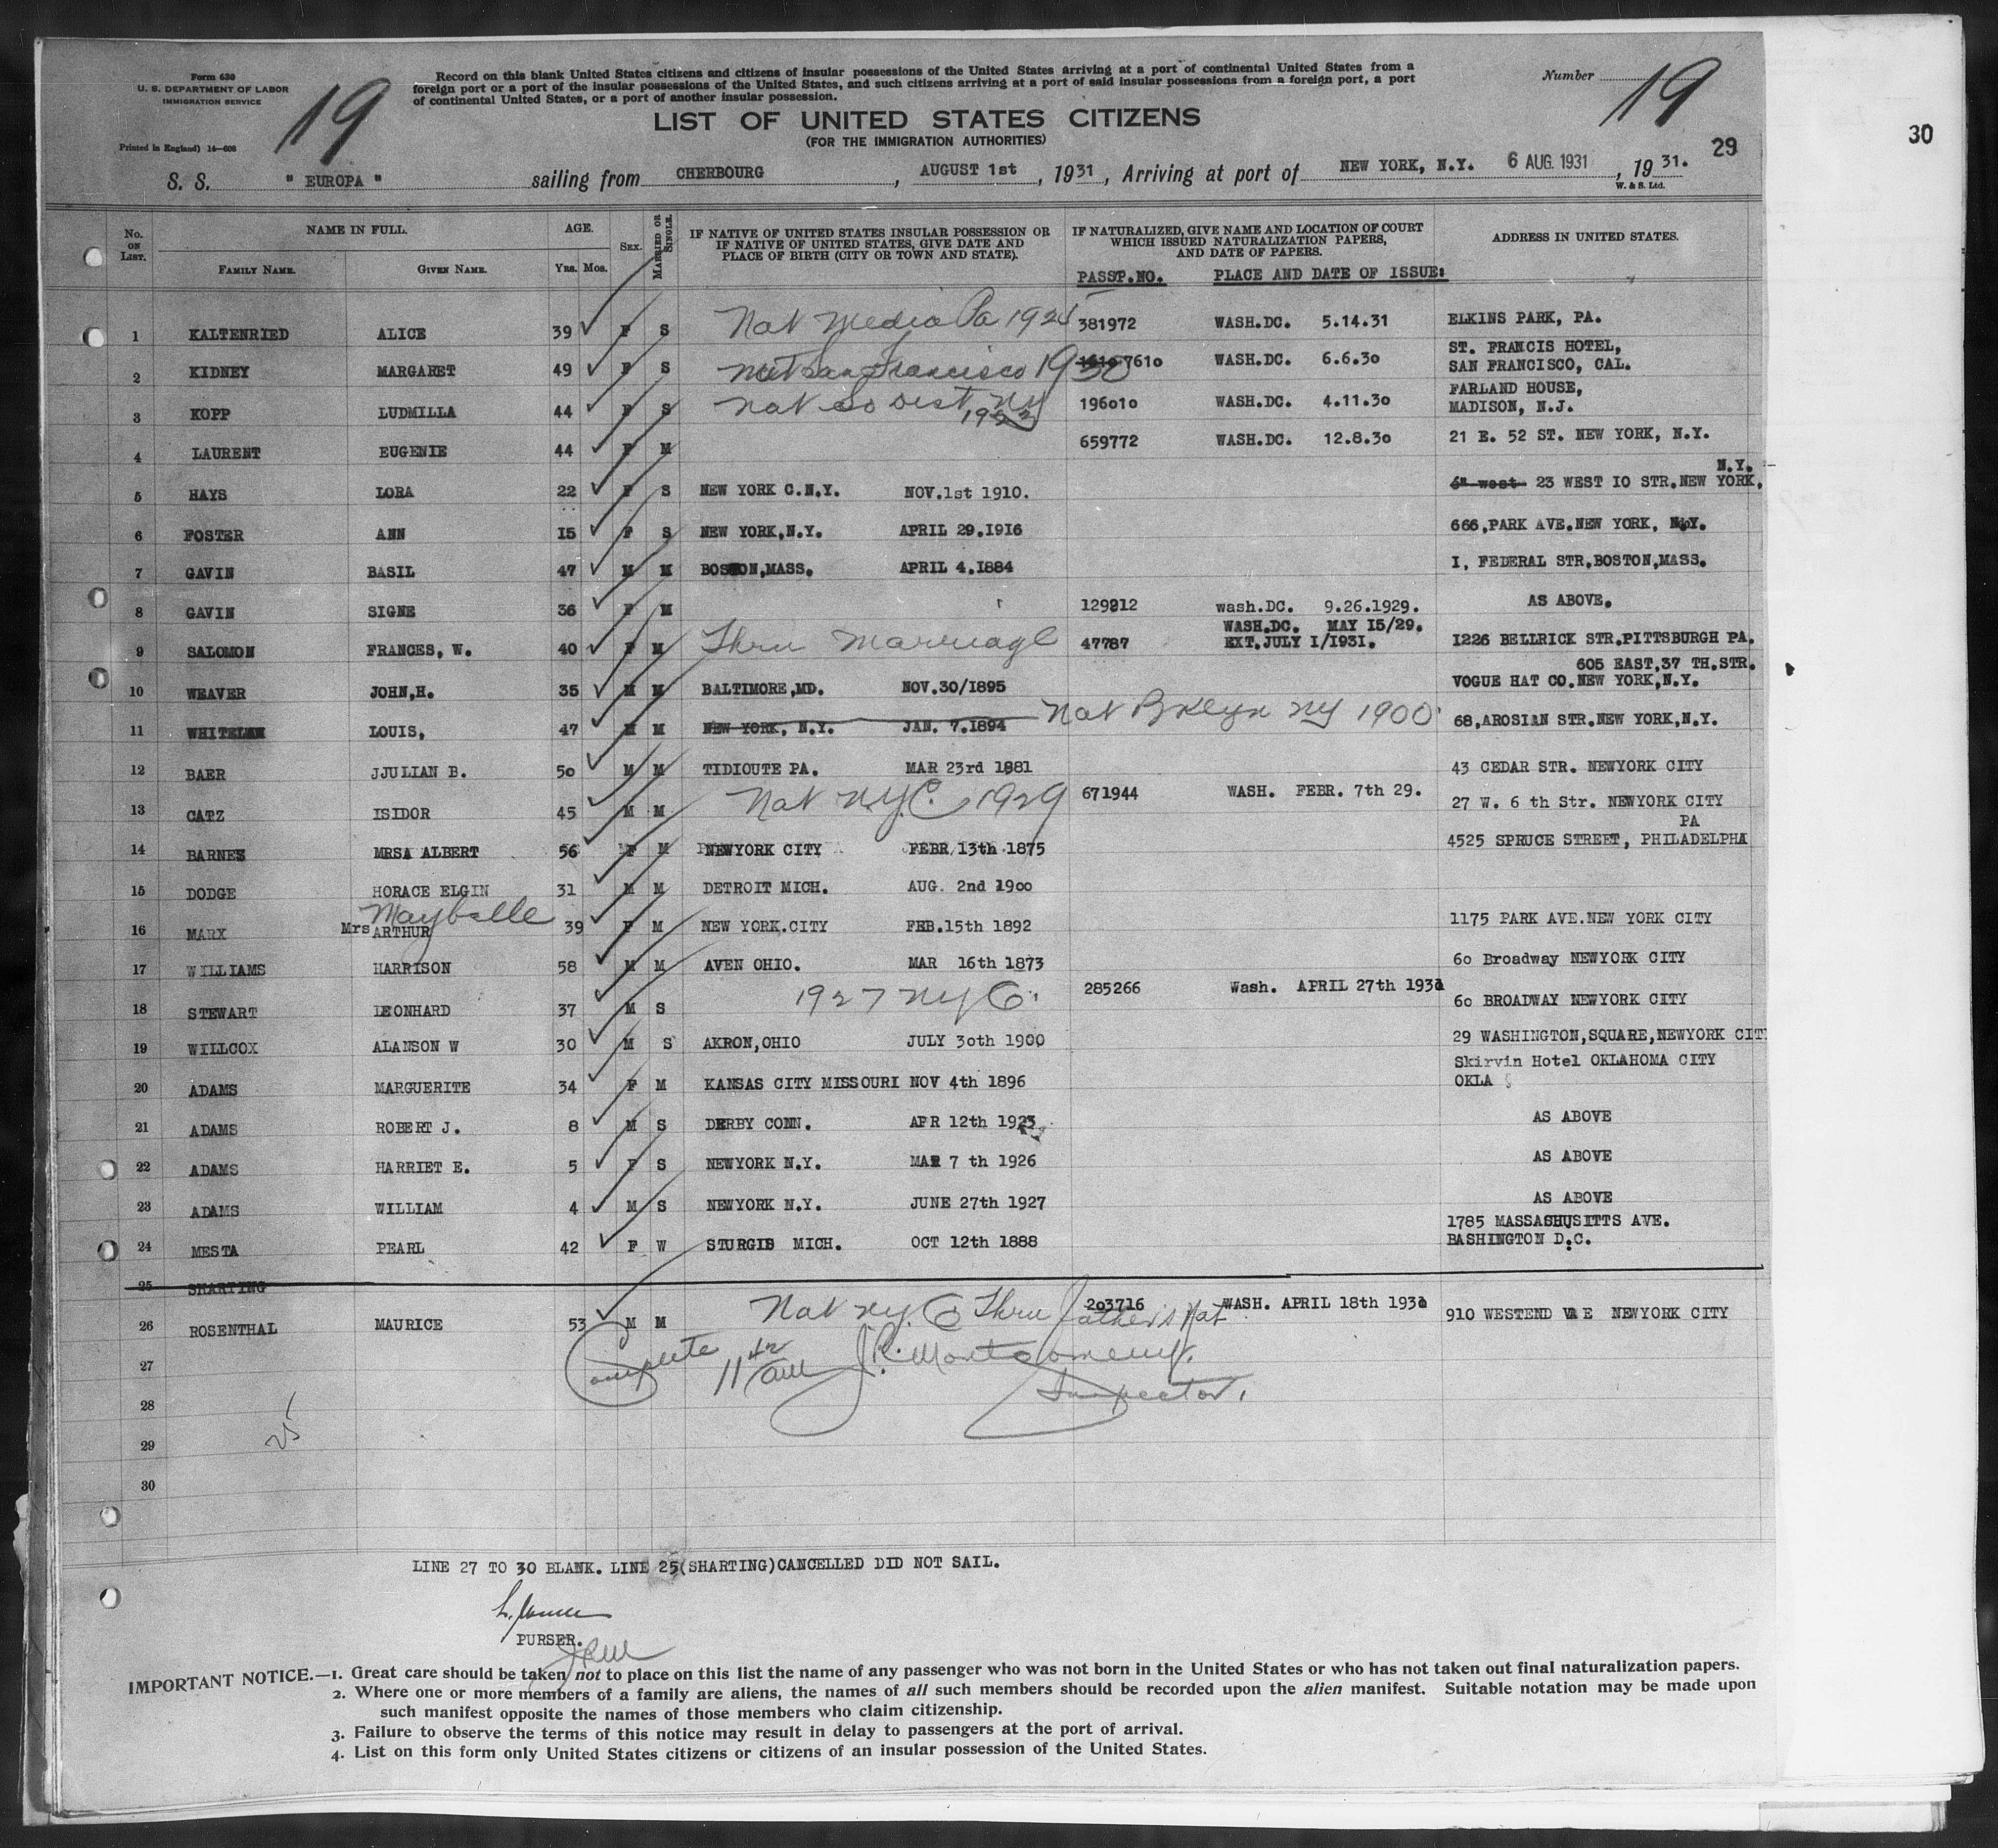 Form 630
U. S. DEPARTMENT OF LABOR
IMMIGRATION SERVICE
Printed in England) 14—608
19
Record on this blank United States citizens and citizens of insular possessions of the United States arriving at a port of continental United States from a
foreign port or a port of the insular possessions of the United States, and such citizens arriving at a port of said insular possessions from a foreign port, a port
of continental United States, or a port of another insular possession.
Number
19
LIST OF UNITED STATES CITIZENS
(FOR THE IMMIGRATION AUTHORITIES)
29
30
S. S. " EUROPA " sailing from CHERBOURG, AUGUST 1st, 1931, Arriving at port of NEW YORK, N.Y. 6 AUG. 1931, 1931.
W. & S. Ltd.
No. ON LIST. NAME IN FULL. AGE. SEX. MARRIED OR SINGLE. IF NATIVE OF UNITED STATES INSULAR POSSESSION OR IF NATIVE OF UNITED STATES, GIVE DATE AND PLACE OF BIRTH (CITY OR TOWN AND STATE). IF NATURALIZED, GIVE NAME AND LOCATION OF COURT WHICH ISSUED NATURALIZATION PAPERS, AND DATE OF PAPERS. ADDRESS IN UNITED STATES.
FAMILY NAME. GIVEN NAME. Yrs. Mos. PASSP.NO. PLACE AND DATE OF ISSUE:
1 KALTENRIED ALICE 39 F S Nat Media Pa 1925 381972 WASH.DC. 5.14.31 ELKINS PARK, PA.
2 KIDNEY MARGARET 49 F S Nat San Francisco 1930 7610 WASH.DC. 6.6.30 ST. FRANCIS HOTEL, SAN FRANCISCO, CAL.
3 KOPP LUDMILLA 44 F S Nat So Dist NY 1923 196010 WASH.DC. 4.11.30 FARLAND HOUSE, MADISON, N.J.
4 LAURENT EUGENIE 44 F M 659772 WASH.DC. 12.8.30 21 E. 52 ST. NEW YORK, N.Y.
5 HAYS LORA 22 F S NEW YORK C.N.Y. NOV.1st 1910. 23 WEST IO STR.NEW YORK, N.Y.
6 FOSTER ANN 15 F S NEW YORK,N.Y. APRIL 29.1916 666,PARK AVE.NEW YORK, N.Y.
7 GAVIN BASIL 47 M M BOSTON,MASS. APRIL 4.1884 I, FEDERAL STR,BOSTON,MASS.
8 GAVIN SIGNE 36 F M 129912 wash.DC. 9.26.1929. AS ABOVE.
9 SALOMON FRANCES, W. 40 F M Thru Marriage 47787 WASH.DC. MAY 15/29. EXT.JULY 1/1931. 1226 BELLRICK STR.PITTSBURGH PA.
10 WEAVER JOHN,H. 35 M M BALTIMORE,MD. NOV.30/1895 605 EAST,37 TH.STR. VOGUE HAT CO.NEW YORK,N.Y.
11 WHITELAW LOUIS, 47 M M NEW YORK, N.Y. JAN. 7.1894 Nat Bklyn NY 1900 68,AROSIAN STR.NEW YORK,N.Y.
12 BAER JJULIAN B. 50 M M TIDIOUTE PA. MAR 23rd 1881 43 CEDAR STR. NEWYORK CITY
13 CATZ ISIDOR 45 M M Nat N.Y.C. 1929 671944 WASH. FEBR. 7th 29. 27 W. 6 th Str. NEWYORK CITY
14 BARNES MRSA ALBERT 56 F M NEWYORK CITY FEBR 13th 1875 4525 SPRUCE STREET, PHILADELPHA PA
15 DODGE HORACE ELGIN 31 M M DETROIT MICH. AUG. 2nd 1900
16 MARX Mrs ARTHUR Maybelle 39 F M NEW YORK.CITY FEB.15th 1892 1175 PARK AVE.NEW YORK CITY
17 WILLIAMS HARRISON 58 M M AVEN OHIO. MAR 16th 1873 60 Broadway NEWYORK CITY
18 STEWART LEONHARD 37 M S 1927 NYC. 285266 Wash. APRIL 27th 1931 60 BROADWAY NEWYORK CITY
19 WILLCOX ALANSON W 30 M S AKRON,OHIO JULY 30th 1900 29 WASHINGTON,SQUARE,NEWYORK CIT
20 ADAMS MARGUERITE 34 F M KANSAS CITY MISSOURI NOV 4th 1896 Skirvin Hotel OKLAHOMA CITY OKLA
21 ADAMS ROBERT J. 8 M S DERBY CONN. APR 12th 1923 AS ABOVE
22 ADAMS HARRIET E. 5 F S NEWYORK N.Y. MAR 7 th 1926 AS ABOVE
23 ADAMS WILLIAM 4 M S NEWYORK N.Y. JUNE 27th 1927 AS ABOVE
24 MESTA PEARL 42 F W STURGIS MICH. OCT 12th 1888 1785 MASSACHUSITTS AVE. BASHINGTON D.C.
25 SHARTING
26 ROSENTHAL MAURICE 53 M M Nat N.Y.C Thru father's Nat 203716 WASH. APRIL 18th 1931 910 WESTEND VAE NEWYORK CITY
27 Complete 11 42 AM J.R. Montgomery.
28 Inspector.
29 25
30
LINE 27 TO 30 BLANK. LINE 25(SHARTING)CANCELLED DID NOT SAIL.
PURSER.
JRM
IMPORTANT NOTICE.—1. Great care should be taken not to place on this list the name of any passenger who was not born in the United States or who has not taken out final naturalization papers.
2. Where one or more members of a family are aliens, the names of all such members should be recorded upon the alien manifest. Suitable notation may be made upon
such manifest opposite the names of those members who claim citizenship.
3. Failure to observe the terms of this notice may result in delay to passengers at the port of arrival.
4. List on this form only United States citizens or citizens of an insular possession of the United States.